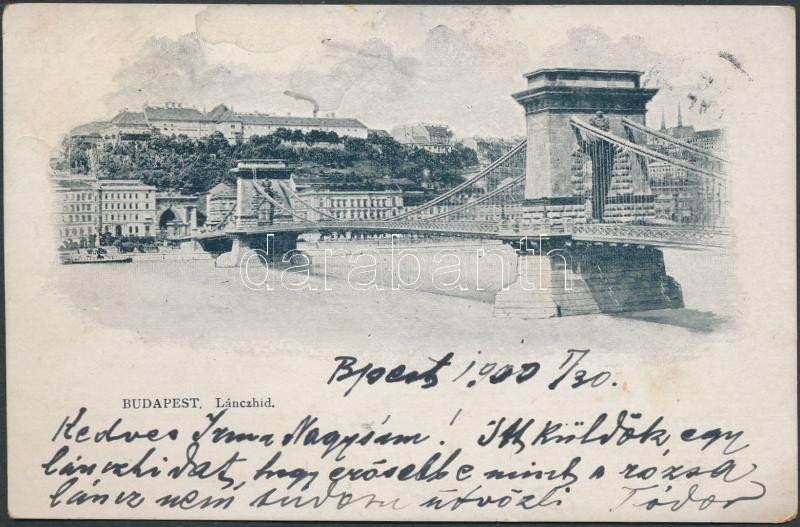 darabanth
BUDAPEST, Lánczhid.
Bpest, 1900 I/30.
Kedves Irma Nagysám! Itt küldök egy
lánczhidat, hogy erősebb-e mint a rózsa
láncz nem tudom üdvözli Tódor